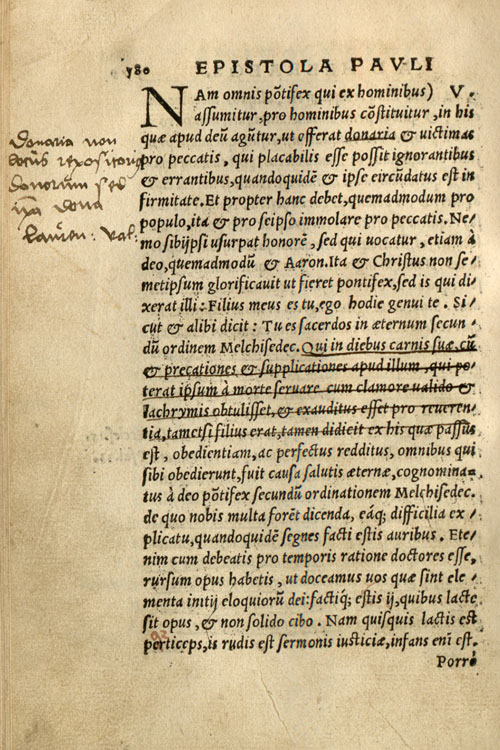 780 EPISTOLA PAVLI
NAm omnis põtifex qui ex hominibus) V.
assumitur, pro hominibus cõstituitur, in his
quæ apud deũ agũtur, ut offerat donaria & uictimas
pro peccatis, qui placabilis esse possit ignorantibus
& errantibus, quandoquidẽ & ipse circũdatus est in
firmitate. Et propter hanc debet, quemadmodum pro
populo, ita & pro seipso immolare pro peccatis. Ne-
mo sibijpsi usurpat honorẽ, sed qui uocatur, etiam à
deo, quemadmodũ & Aaron. Ita & Christus non se-
metipsum glorificauit ut fieret pontifex, sed is qui di-
xerat illi: Filius meus es tu, ego hodie genui te. Si-
cut & alibi dicit: Tu es sacerdos in æternum secun-
dũ ordinem Melchisedec. Qui in diebus carnis suæ, cũ
& precationes & supplicationes apud illum, qui po-
terat ipsum à morte seruare cum clamore ualido &
lachrymis obtulisset, & exauditus esset pro reueren-
tia, tametsi filius erat, tamen didicit ex his quæ passus
est, obedientiam, ac perfectus redditus, omnibus qui
sibi obedierunt, fuit causa salutis æternæ, cognomina-
tus à deo põtifex secundũ ordinationem Melchisedec.
de quo nobis multa forẽt dicenda, eáq; difficilia ex-
plicatu, quandoquidẽ segnes facti estis auribus. Ete-
nim cum debeatis pro temporis ratione doctores esse,
rursum opus habetis, ut doceamus uos quæ sint ele-
menta initij eloquiorũ dei: factiq; estis ij, quibus lacte
sit opus, & non solido cibo. Nam quisquis lactis est
perticeps, is rudis est sermonis iusticiæ, infans enĩ est.
Porrò
donaria non
locus repositorius
donorum sed
dona
Lauren: Val: